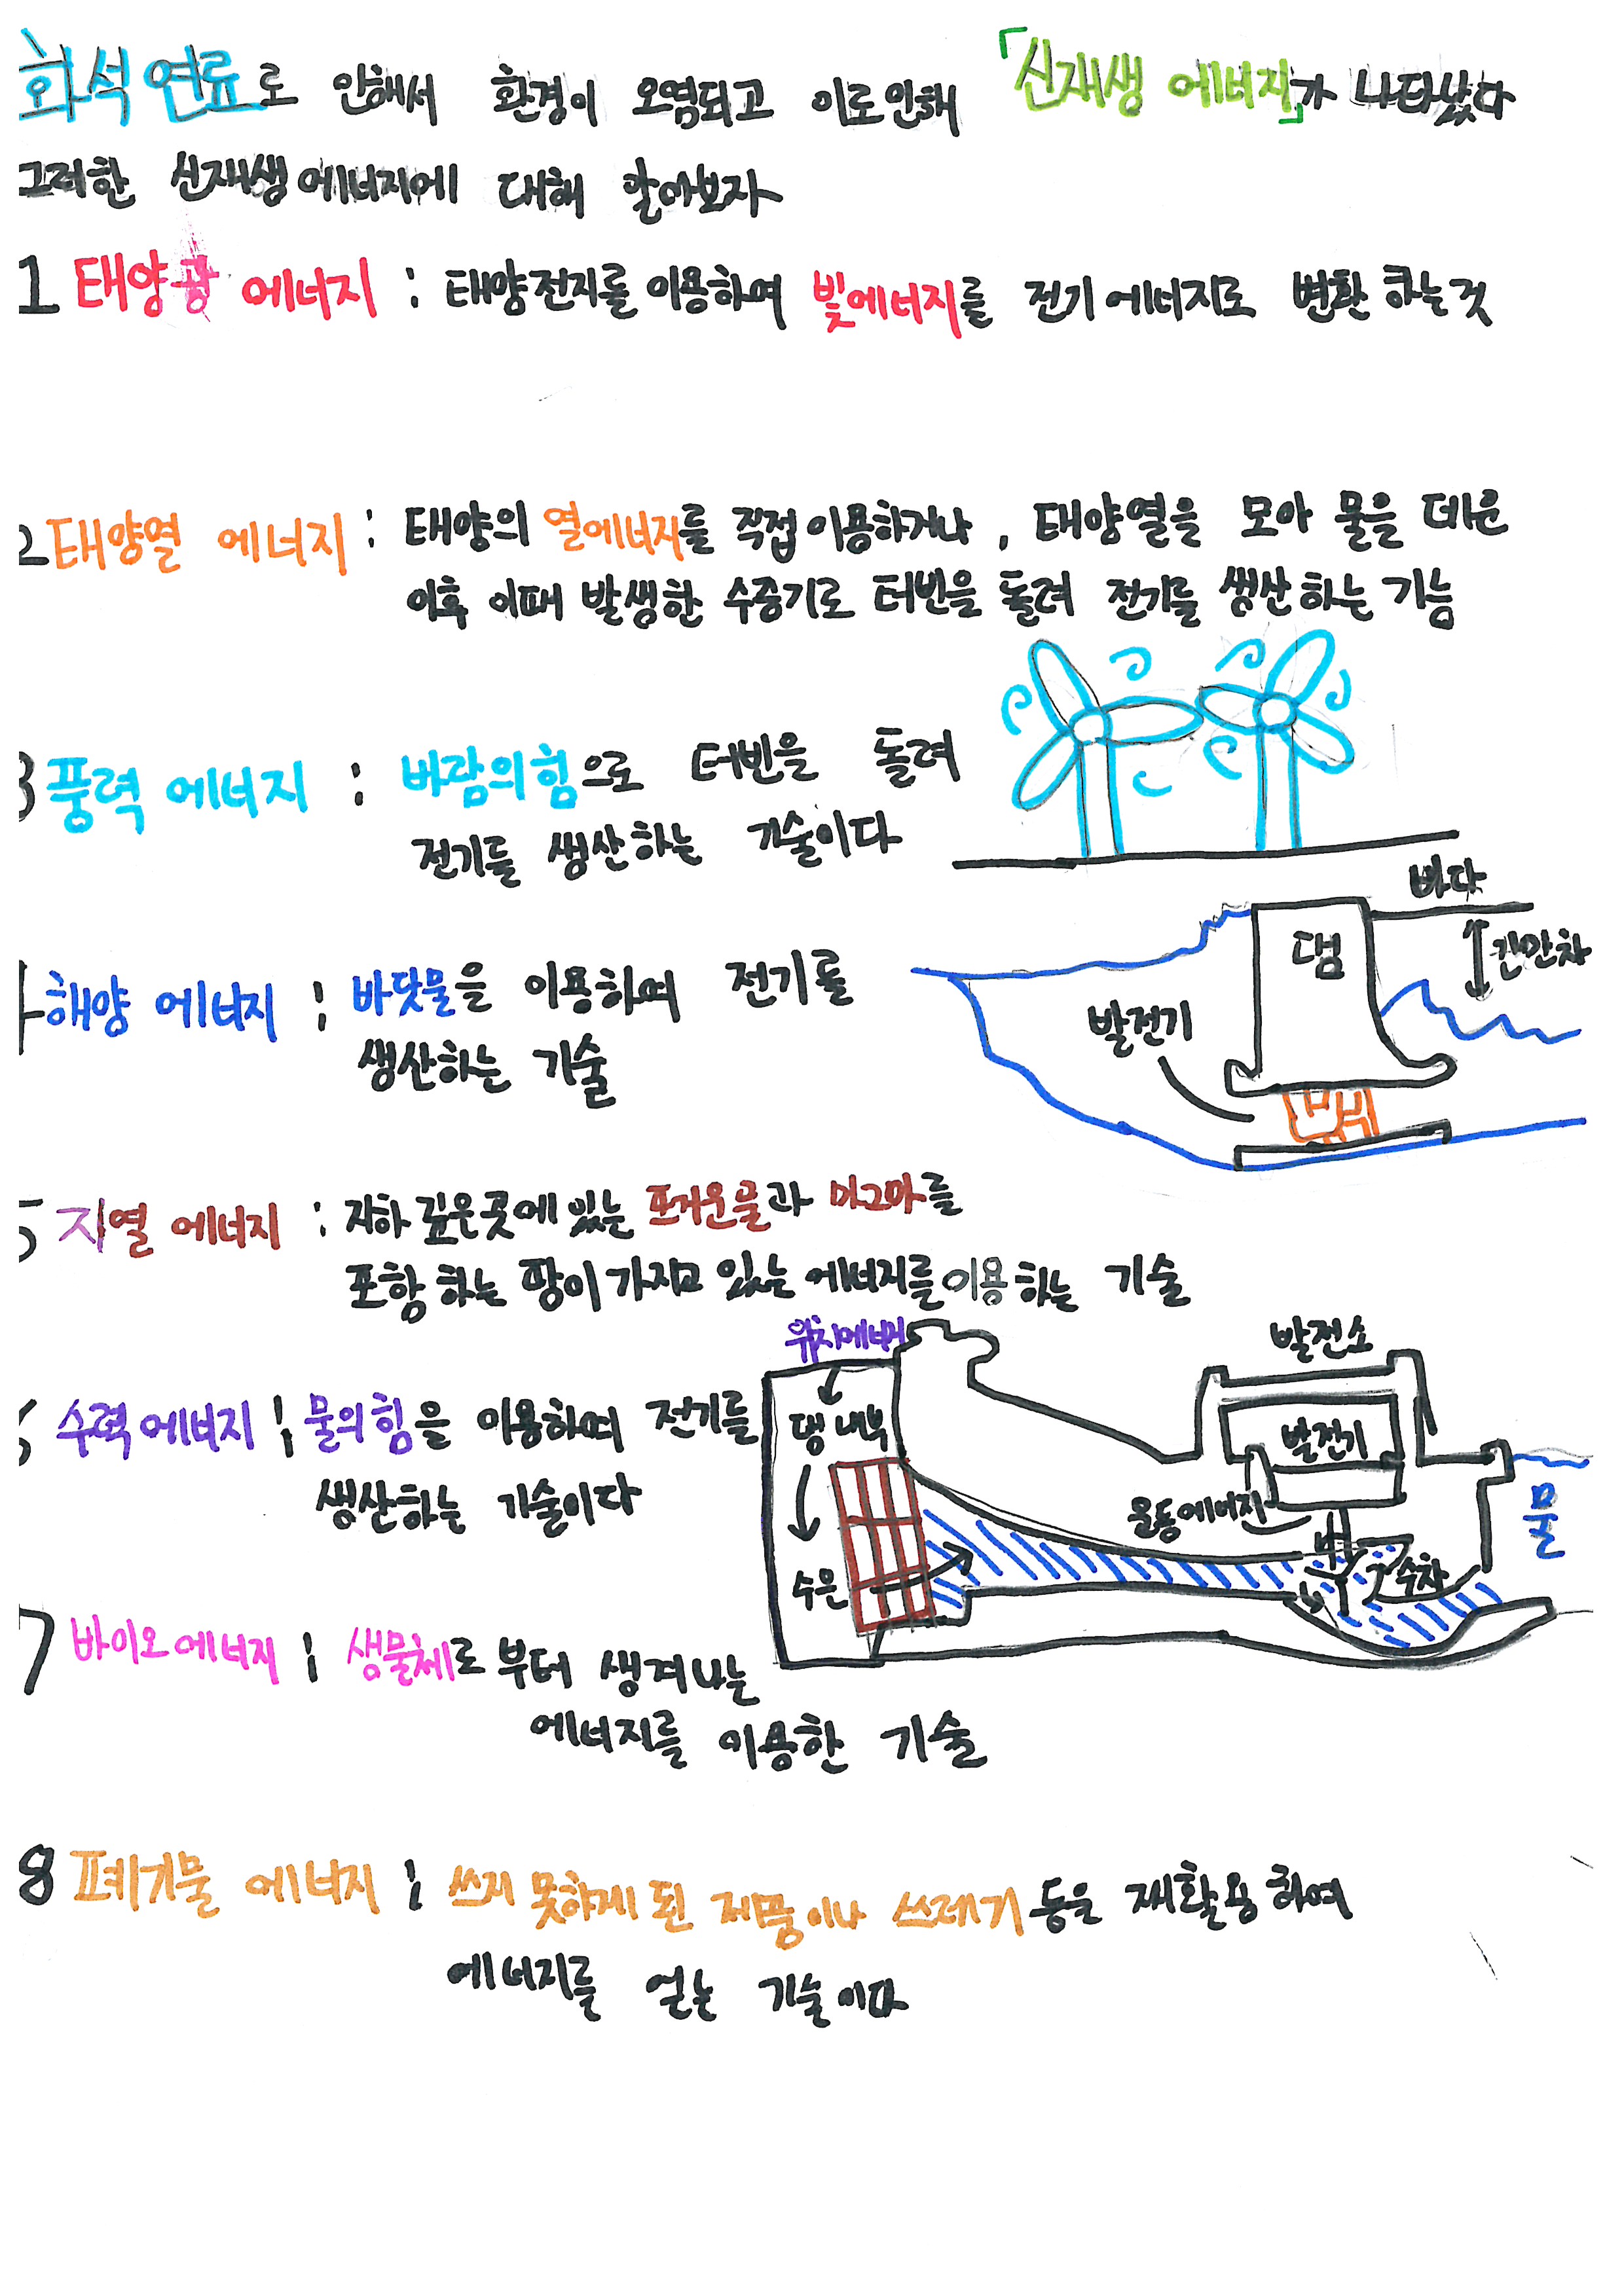 화석연료로 인해서 환경이 오염되고 이로인해 「신재생 에너지」가 나타났다
그러한 신재생에너지에 대해 알아보자
1 태양광 에너지 : 태양전지를 이용하여 빛에너지를 전기에너지로 변환하는것
2 태양열 에너지 : 태양의 열에너지를 직접이용하거나, 태양열을 모아 물을 데운
이후 이때 발생한 수증기로 터빈을 돌려 전기를 생산하는 기능
3 풍력 에너지 : 바람의힘으로 터빈을 돌려
전기를 생산하는 기술이다
바다
댐
간만차
발전기
4 해양 에너지 : 바닷물을 이용하여 전기를
생산하는 기술
5 지열 에너지 : 지하 깊은곳에 있는 뜨거운물과 마그마를
포함하는 땅이 가지고 있는 에너지를 이용하는 기술
위치에너지
발전소
6 수력에너지 : 물의힘을 이용하여 전기를
생산하는 기술이다
댐 내부
발전기
운동에너지
물
수문
수차
7 바이오에너지 : 생물체로 부터 생겨나는
에너지를 이용한 기술
8 폐기물 에너지 : 쓰지 못하게 된 제품이나 쓰레기 등을 재활용하여
에너지를 얻는 기술이다